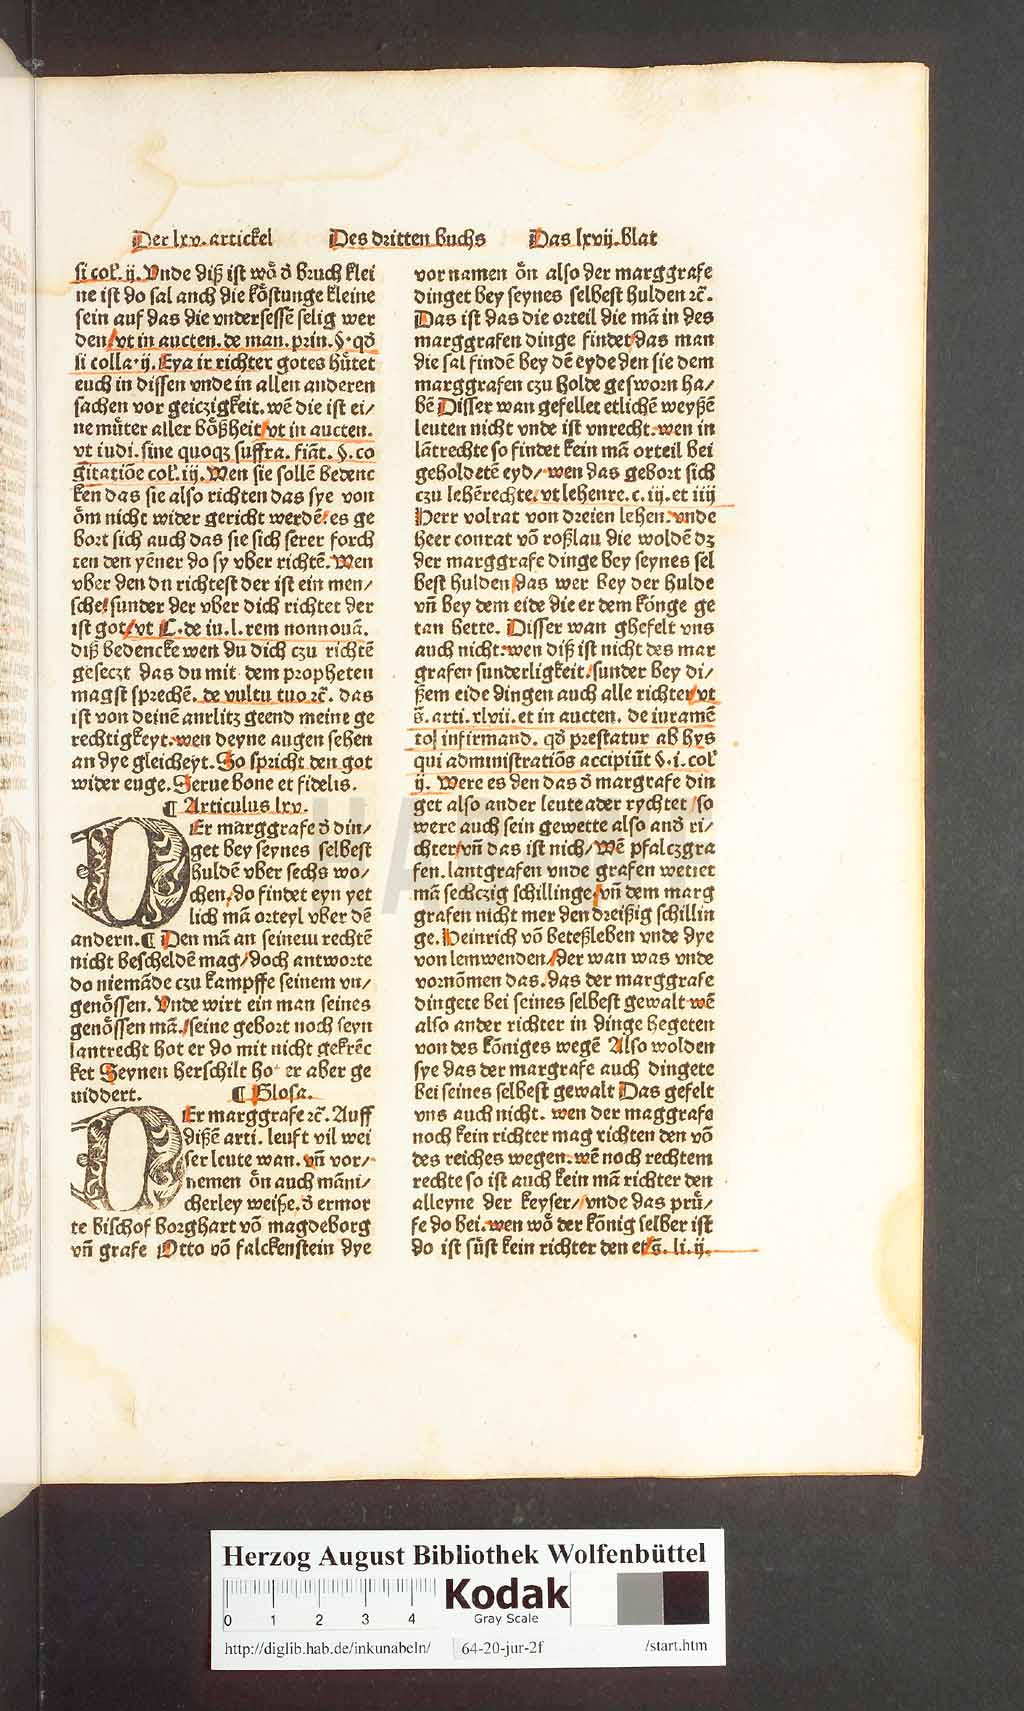 Der lxv. artickel Des dritten buchs Das lxvij. blat
si col'. ij. Vnde diß ist wo͛ d̕ bruch klei
ne ist do sal anch die kôstunge kleine
sein auf das die vndersessē selig wer
den/vt in aucten. de man. prin. §. qđ
si colla. ij. Eya ir richter gotes hůtet
euch in dissen vnde in allen anderen
sachen vor geiczigkeit. wē die ist ei/
ne můter aller bôßheit/vt in aucten.
vt iudi. sine quoqꝫ suffra. fiāt. §. co
gitatiōe col'. iij. Wen sie sollē bedenc
ken das sie also richten das sye von
ôm nicht wider gericht werdē/es ge
bort sich auch das sie sich serer forch
ten den yēner do sy vber richtē. Wen
vber den du richtest der ist ein men/
sche/sunder der vber dich richter der
ist got/vt C. de iu. l. rem nonnouā.
diß bedencke wen du dich czu richtē
geseczt das du mit dem propheten
magst sprechē. de vultu tuo ꝛc̄. das
ist von deinē anrlitz geend meine ge
rechtigkeyt. wen deyne augen sehen
an dye gleicheyt. So spricht den got
wider euge. Serue bone et fidelis.
¶ Articulus lxv.
DEr marggrafe d̕ din/
get bey seynes selbest
huldē vber sechs wo/
chen/do findet eyn yet
lich mā orteyl vber dē
andern. ¶ Den mā an seinem rechtē
nicht bescheldē mag/doch antworte
do niemāde czu kampffe seinem vn/
genôssen. Vnde wirt ein man seines
genôssen mā./seine gebort noch seyn
lantrecht hot er do mit nicht gekrēc
ket Seynen herschilt hot er aber ge
niddert. ¶ Glosa.
DEr marggrafe ꝛc̄. Auff
dißē arti. leuft vil wei
ser leute wan. vn̄ vor/
nemen ôn auch māni/
cherley weiße. d̕ ermor
te bischof borghart vō magdeborg
vn̄ grafe Otto vō falckenstein dye
vor namen ôn also der marggrafe
dinget bey seynes selbest hulden ꝛc̄.
Das ist das die orteil die mā in des
marggrafen dinge findet/das man
die sal findē bey dē eyde den sie dem
marggrafen czu holde gesworn ha/
bē Disser wan gefellet etlichē weyßē
leuten nicht vnde ist vnrecht. wen in
lātrechte so findet kein mā orteil bei
geholdetē eyd/wen das gebort sich
czu lehērechte. vt lehenre. c. iij. et iiij
Herr volrat von dreien lehen. vnde
heer conrat vō roßlau die woldē dꝫ
der marggrafe dinge bey seynes sel
best hulden/das wer bey der hulde
vn̄ bey dem eide die er dem kônge ge
tan hette. Disser wan ghefelt vns
auch nicht. wen diß ist nicht des mar
grafen sunderligkeit/sunder bey di/
ßem eide dingen auch alle richter/vt
s̄. arti. xlvii. et in aucten. de iuramē
to infirmand. qđ prestatur ab hys
qui administratiōs accipiūt §. i. col'
ij. Were es den das d̕ margrafe din
get also ander leute ader rychter/so
were auch sein gewette also and̕ ri/
chter/vn̄ das ist nich/Wē pfalczgra
fen. lantgrafen vnde grafen wettet
mā sechczig schillinge/vn̄ dem marg
grafen nicht mer den dreißig schillin
ge. Heinrich vō beteßleben vnde dye
von lemwenden/der wan was vnde
vornômen das. das der marggrafe
dingete bei seines selbest gewalt wē
also ander richter in dinge hegeten
von des kôniges wegē Also wolden
sye das der margrafe auch dingete
bei seines selbest gewalt Das gefelt
vns auch nicht. wen der maggrafe
noch kein richter mag richten den vō
des reiches wegen. wē noch rechtem
rechte so ist auch kein mā richter den
alleyne der keyser/vnde das prů/
fe do bei. wen wo͛ der kônig selber ist
do ist sůst kein richter den er/s̄. li. ij.
Herzog August Bibliothek Wolfenbüttel
0 1 2 3 4
Kodak
Gray Scale
http://diglib.hab.de/inkunabeln/ 64-20-jur-2f /start.htm